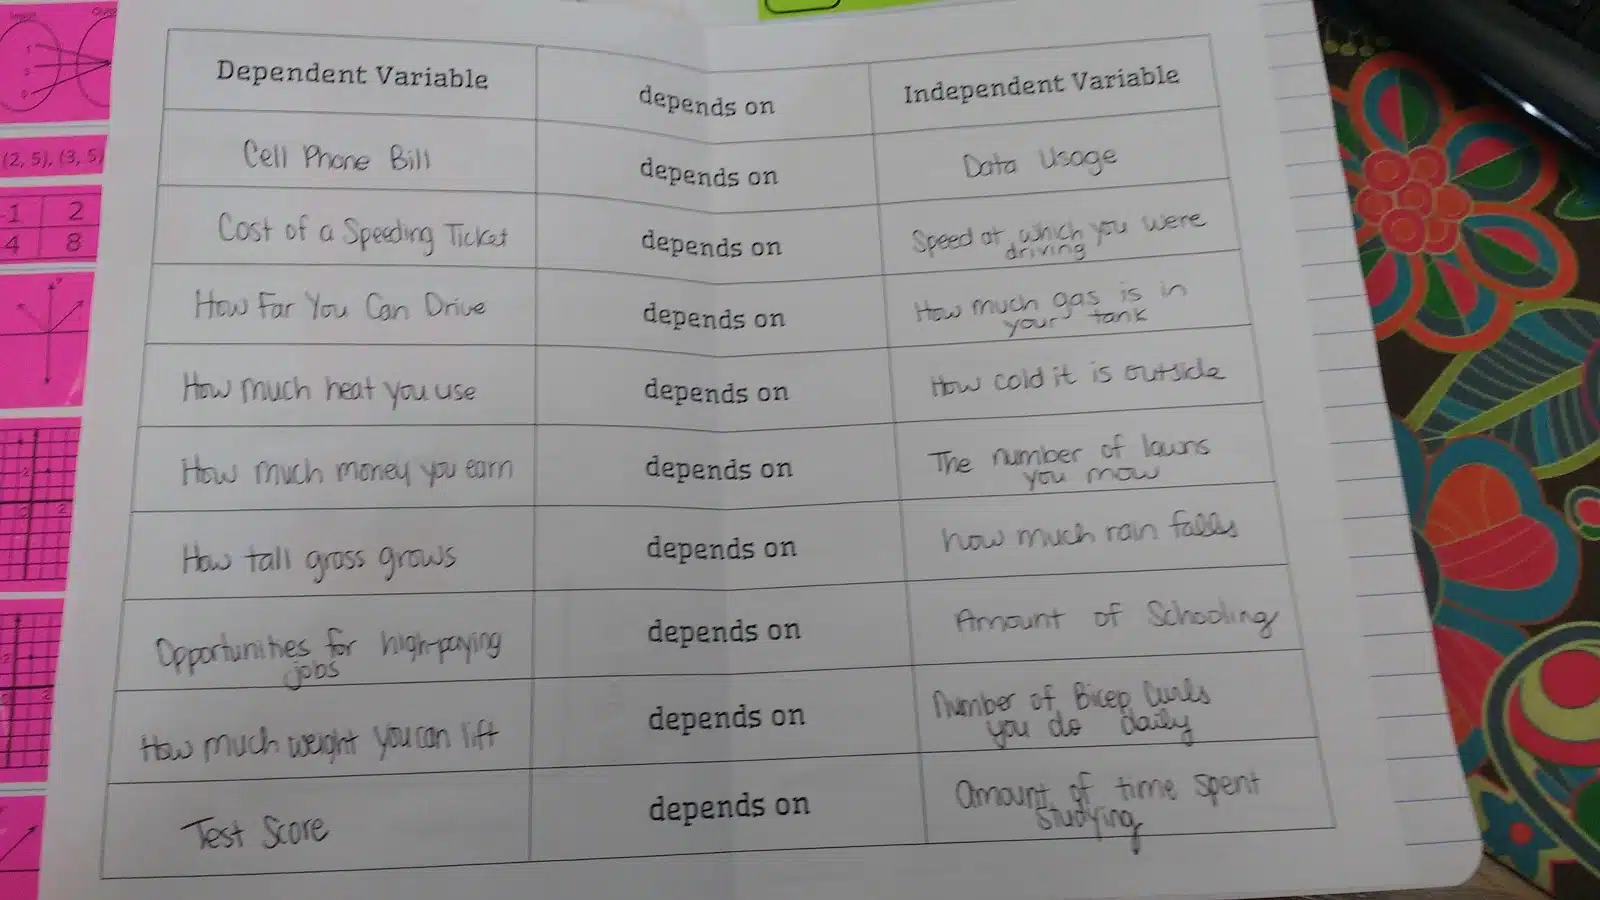 Dependent Variable depends on Independent Variable
Cell Phone Bill depends on Data Usage
Cost of a Speeding Ticket depends on Speed at which you were
driving
How Far You Can Drive depends on How much gas is in
your tank
How much heat you use depends on How cold it is outside
How much money you earn depends on The number of lawns
you mow
How tall grass grows depends on how much rain falls
Opportunities for high-paying
jobs depends on Amount of Schooling
How much weight you can lift depends on Number of Bicep Curls
you do daily
Test Score depends on Amount of time spent
studying
(2, 5), (3, 5)
-1 2
4 8